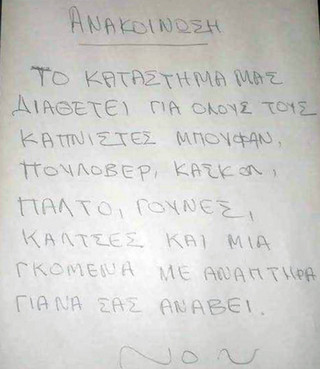 ΑΝΑΚΟΙΝΩΣΗ
ΤΟ ΚΑΤΑΣΤΗΜΑ ΜΑΣ
ΔΙΑΘΕΤΕΙ ΓΙΑ ΟΛΟΥΣ ΤΟΥΣ
ΚΑΠΝΙΣΤΕΣ ΜΠΟΥΦΑΝ,
ΠΟΥΛΟΒΕΡ, ΚΑΣΚΟΛ,
ΠΑΛΤΟ, ΓΟΥΝΕΣ,
ΚΑΛΤΣΕΣ ΚΑΙ ΜΙΑ
ΓΚΟΜΕΝΑ ΜΕ ΑΝΑΠΤΗΡΑ
ΓΙΑ ΝΑ ΣΑΣ ΑΝΑΒΕΙ.